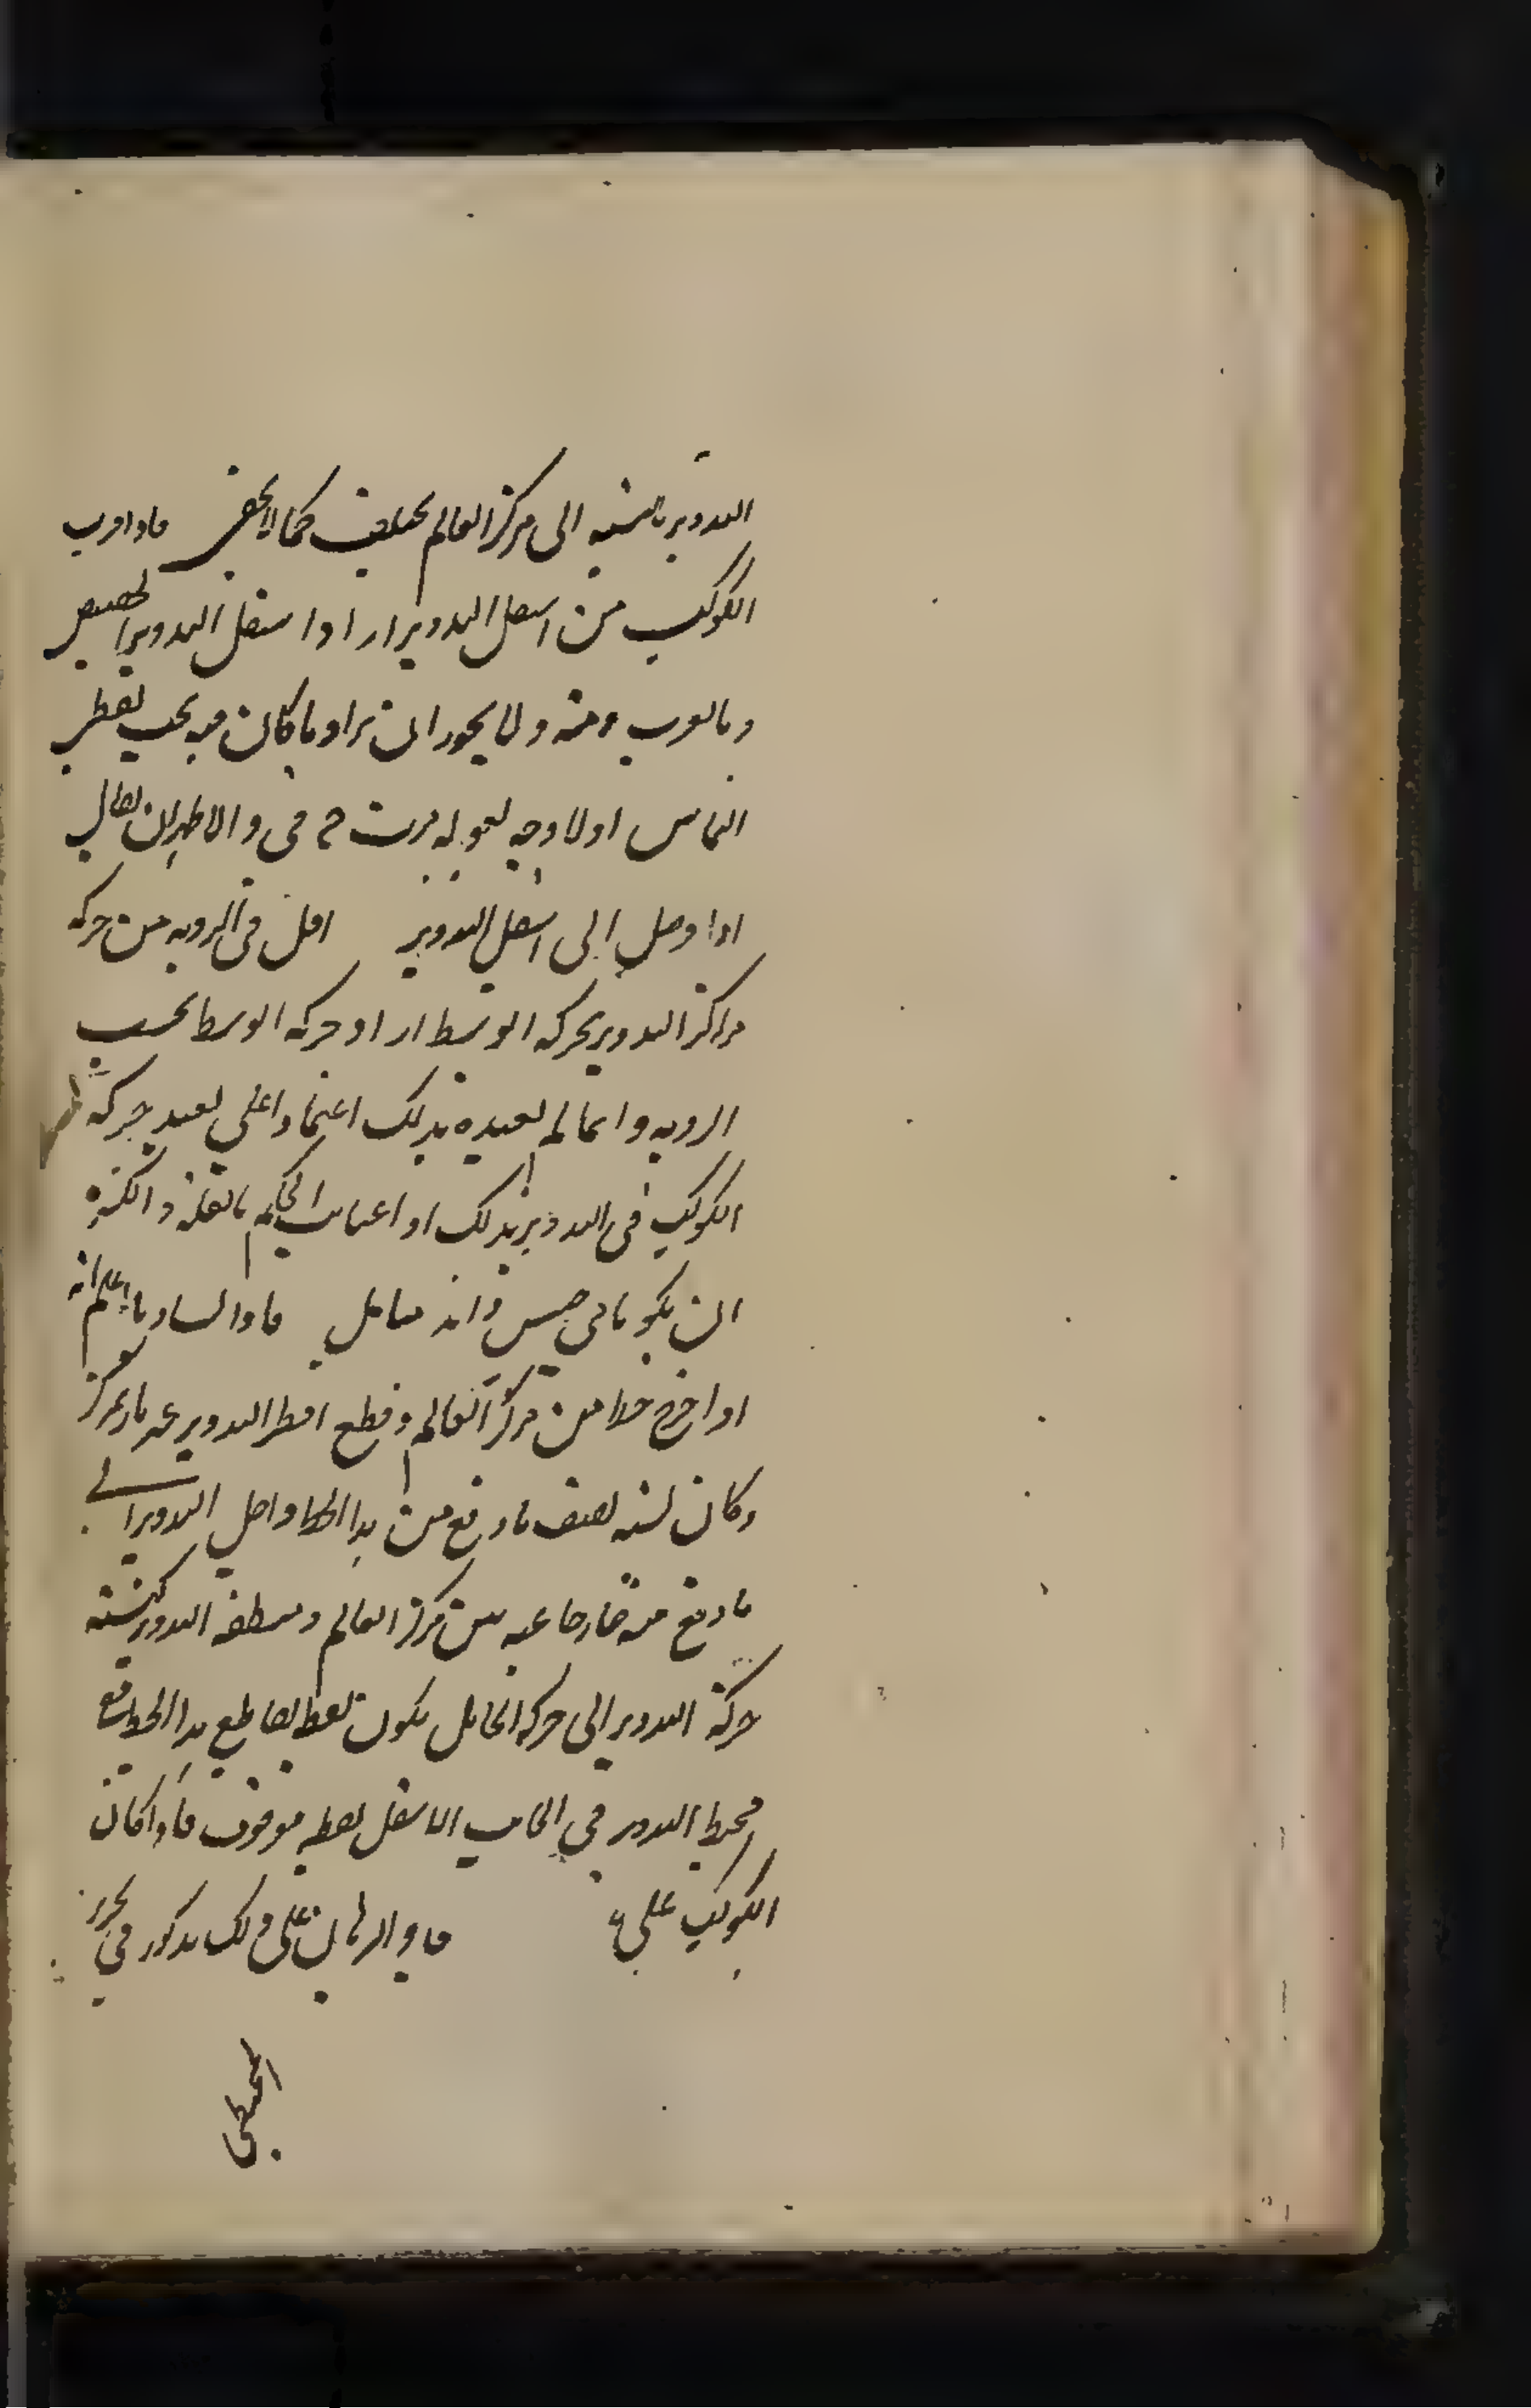 التدوير بالنسبة الى مركز العالم يختلف كما لا يخفى فاذا قرب
الكوكب من اسفل التدوير اراد باسفل التدوير الحضيض
وبالقرب منه ولا يجوز ان يراد ما كان فيه بحيث نقطتى
التماس اولا وجه لقوله قربت ح فى والاظهر ان يقال
اذا وصل الى اسفل التدوير اقل فى الرويه من حركة
مراكز التدوير بحركة الوسط اراد حركة الوسط بحسب
الرويه وانما لم يقيده بذلك اعتمادا على تقييد حركة
الكوكب فى التدوير بذلك او اعتبارا لحكم بالقلة والكثرة
ان يكونا من جنس واحد تامل فاذا تساويا اعلم انه
اذا اخرج خط من مركز العالم وقطع اقطر التدوير غير مار بمركز
وكان نسبة نصف ما وقع من هذا الخط داخل التدوير الى
ما وقع منه خارجا عنه بين مركز العالم ومنطقة التدوير كنسبة
حركة التدوير الى حركة الحامل يكون نقطة تقاطع هذا الخط مع
محيط التدوير فى الجانب الاسفل نقطة موقوف فاذا كان
الكوكب عليها والبرهان على ذلك مذكور فى تحرير
المجسطى